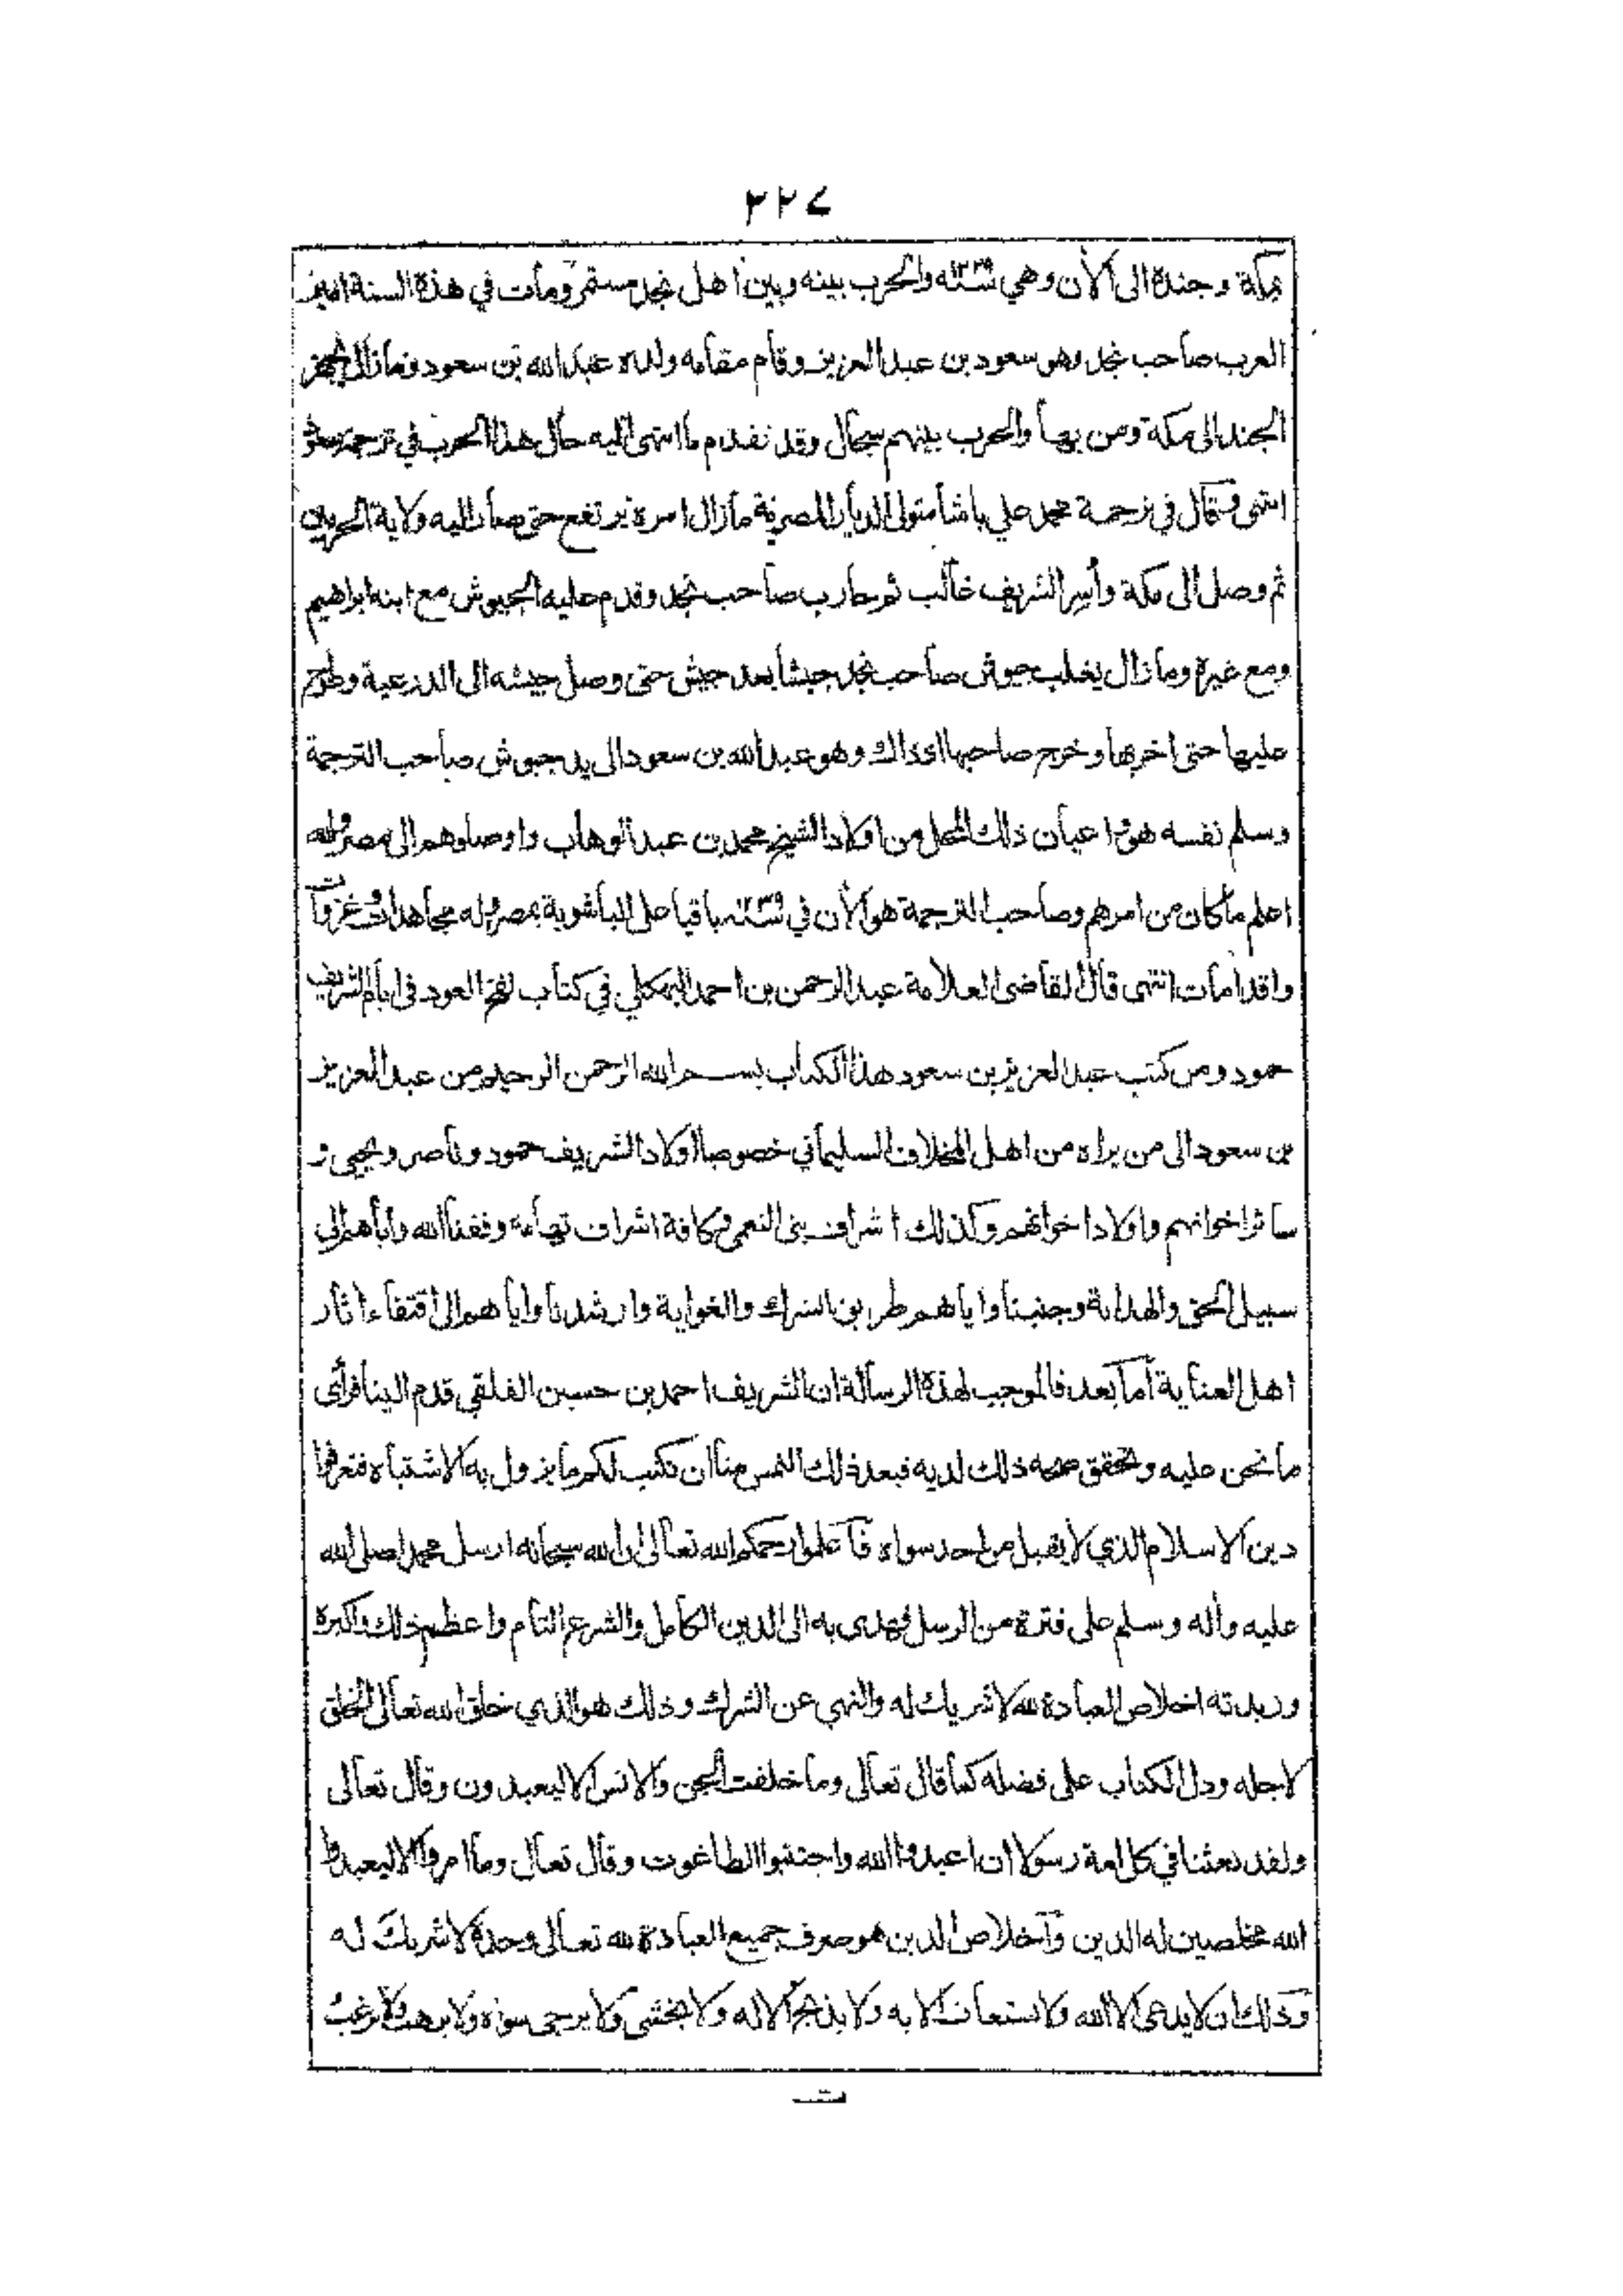 ٢٢٧
بمكة وجنده الى الأن وهي سنة والحرب بينه وبين أهل نجد مستمر ومات في هذه السنة امير
العرب صاحب نجد وهو سعود بن عبد العزيز وقام مقامه ولده عبد الله بن سعود وما زال يجهز
الجند الى مكة ومن بها والحرب بينهم سجال وقد تقدم ما انتهى اليه حال هذا الحرب في ترجمة سعود
انتهى وقال في ترجمة محمد علي باشا متولى الديار المصرية ما زال امره يرتفع حتى صار اليه ولاية الحرمين
ثم وصل الى مكة وأسر الشريف غالب ثم حارب صاحب نجد وقدم عليه الجيوش مع ابنه ابراهيم
ومع غيره وما زال يغلب جيوش صاحب نجد جيشا بعد جيش حتى وصل جيشه الى الدرعية وطرح
عليها حتى اخربها وخرج صاحبها اذ ذاك وهو عبد الله بن سعود الى يد جيوش صاحب الترجمة
وسلم نفسه هو واعيان ذلك المحل من اولاد الشيخ محمد بن عبد الوهاب واوصلوهم الى مصر والله
اعلم ما كان من امرهم وصاحب الترجمة هو الأن في باقيا على الباشوية بمصر وله مجاهدات وغزوات
واقدامات انتهى قال القاضى العلامة عبد الرحمن بن احمد البهكلي في كتاب نفح العود فى ايام الشريف
حمود ومن كتب عبد العزيز بن سعود هذا الكتاب بسم الله الرحمن الرحيم من عبد العزيز
بن سعود الى من يراه من اهل المخلاف السليماني خصوصا اولاد الشريف حمود وناصر ويحيى و
سائر اخوانهم واولاد اخواتهم وكذلك أشراف بنى النعمى وكافة اشراف تهامه وفقنا الله واياهم الى
سبيل الحق والهداية وجنبنا واياهم طريق الشرك والغواية وارشدنا واياهم الى اقتفاء اثار
اهل العناية اما بعد فالموجب لهذه الرسالة ان الشريف احمد بن حسين الفلقي قدم الينا فرأى
ما نحن عليه وتحقق صحة ذلك لديه فبعد ذلك التمس منا ان نكتب لكم ما يزول به الاشتباه فتعرفوا
دين الاسلام الذي لا يقبل من احد سواه فاعلموا رحمكم الله تعالى ان الله سبحانه ارسل محمدا صلى الله
عليه وأله وسلم على فترة من الرسل فهدى به الى الدين الكامل والشرع التام واعظم ذلك واكبره
وزبدته اخلاص العبادة لله لا شريك له والنهي عن الشرك وذلك هو الذي خلق الله تعالى الخلق
لاجله ودل الكتاب على فضله كما قال تعالى وما خلقت الجن والانس الا ليعبدون وقال تعالى
ولقد بعثنا في كل امة رسولا ان اعبدوا الله واجتنبوا الطاغوت وقال تعالى وما امروا الا ليعبدوا
الله مخلصين له الدين واخلاص الدين هو صرف جميع العبادة لله تعالى وحده لا شريك له
وذلك ان لا يدعى الا الله ولا يستعان الا به ولا يذبح الا له ولا يخشى ولا يرجى سواه ولا يرهب ولا يرغب